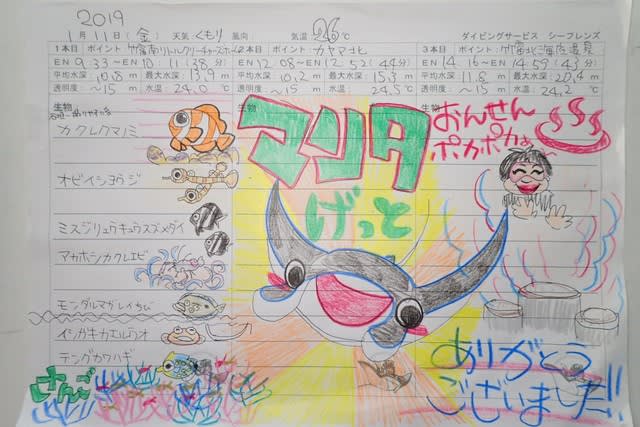 2019
1月11日(金) 天気:くもり 風向: 気温:26℃ ダイビングサービス シーフレンズ
1本目 ポイント:竹富南リトルクリーチャーズホール
EN 9:33〜EX 10:11(38分)
平均水深:10.8m 最大水深:13.9m
透明度:〜15m 水温:24.0℃
2本目 ポイント:カヤマ北
EN 12:08〜EX 12:52(44分)
平均水深:10.2m 最大水深:15.3m
透明度:〜15m 水温:24.5℃
3本目 ポイント:竹富北海底温泉
EN 14:16〜EX 14:59(43分)
平均水深:11.8m 最大水深:20.4m
透明度:〜15m 水温:24.2℃
生物
カクレクマノミ
オビイシヨウジ
ミスジリュウキュウスズメダイ
アカホシカクレエビ
モンダルマガレイちび
イシガキカエルウオ
テングカワハギ
さんご
生物
マンタ
げっと
おんせん
ポカポカぁ
ありがとう
ございました!!